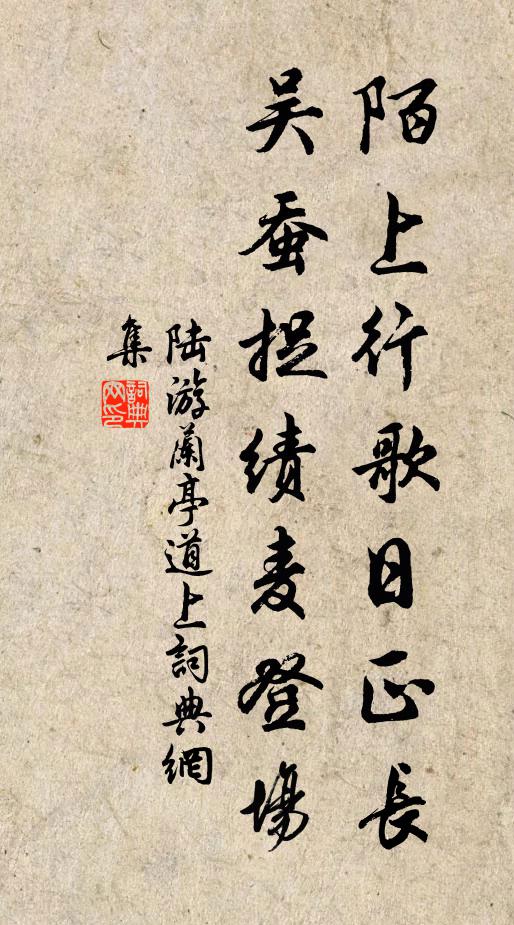 陌上行歌日正長
吴蚕捉績麦登場
陆游蘭亭道上詞典網
集
詞典
网印